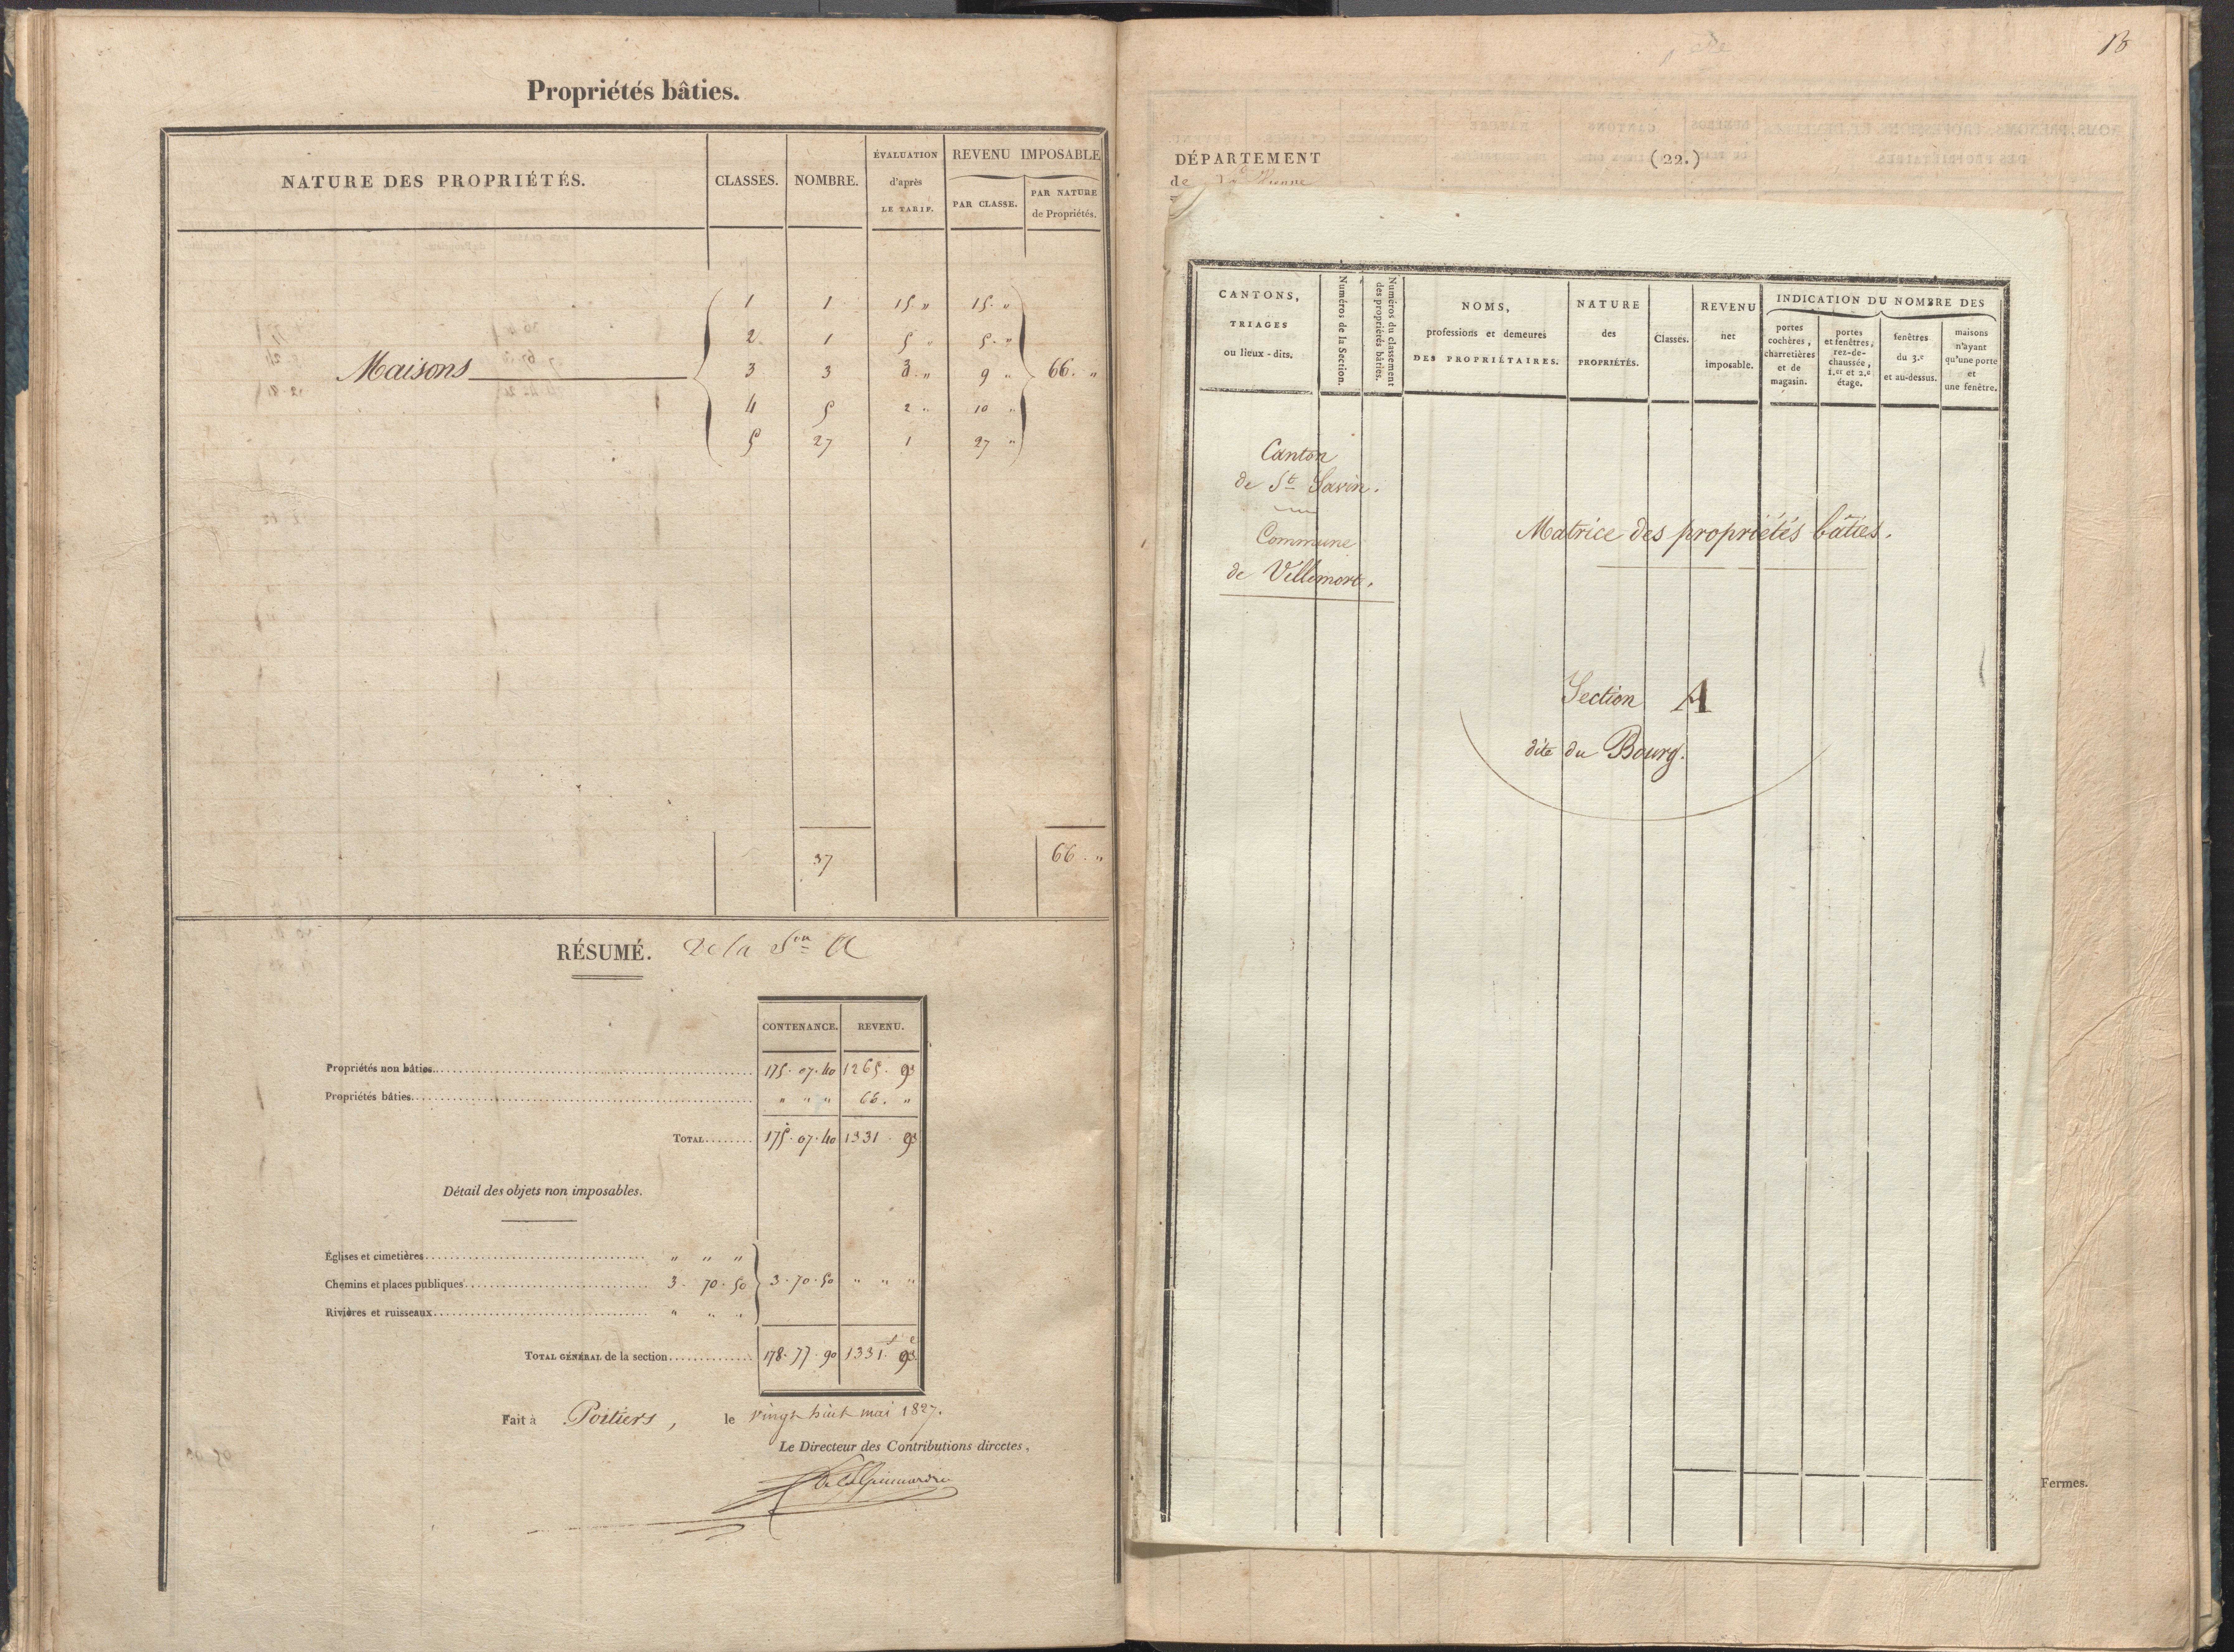 Propriétés bâties.
NATURE DES PROPRIÉTÉS.
CLASSES.
NOMBRE.
ÉVALUATION
d'après
LE TARIF.
REVENU IMPOSABLE
PAR CLASSE.
PAR NATURE
de Propriétés.
1 1 15 " 15 "
2 1 5 " 5 "
Maisons 3 3 3 " 9 " 66 "
4 5 2 " 10 "
5 27 1 27 "
37 66 "
RÉSUMÉ. de la Son A
CONTENANCE. REVENU.
Propriétés non bâties 175. 07. 40 1265. 93
Propriétés bâties " " " 66. "
TOTAL 175. 07. 40 1331. 93
Détail des objets non imposables.
Églises et cimetières " " "
Chemins et places publiques 3. 70. 50 3. 70. 50 " " "
Rivières et ruisseaux " " "
TOTAL GÉNÉRAL de la section 178. 77. 90 1331.f 93.c
Fait à Poitiers, le vingt huit mai 1827.
Le Directeur des Contributions directes,
DÉPARTEMENT
de la Vienne
(22.)
CANTONS,
TRIAGES
ou lieux-dits.
Numéros de la Section.
Numéros du classement
des propriétés bâties.
NOMS,
professions et demeures
DES PROPRIÉTAIRES.
NATURE
des
PROPRIÉTÉS.
Classes.
REVENU
net
imposable.
INDICATION DU NOMBRE DES
portes
cochères,
charretières
et de
magasin.
portes
et fenêtres,
rez-de-
chaussée,
1.er et 2.e
étage.
fenêtres
du 3.e
et au-dessus.
maisons
n'ayant
qu'une porte
et
une fenêtre.
Canton
de St Savin.
Commune
de Villemort.
Matrice des propriétés bâties.
Section A
dite du Bourg.
Fermes.